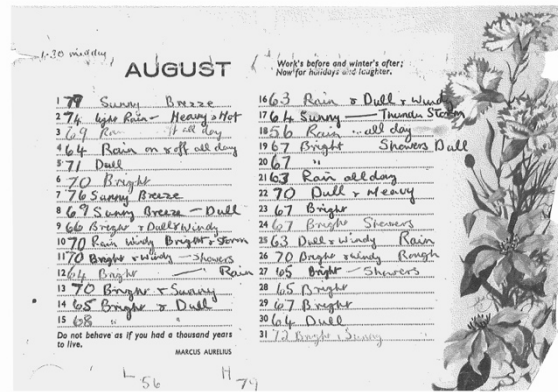 1-30 midday
AUGUST
Work's before and winter's after;
Now for holidays and laughter.
1 77 Sunny Breeze
2 74 light Rain - Heavy & Hot
3 69 Rain off all day
4 64 Rain on & off all day
5 71 Dull
6 70 Bright
7 76 Sunny Breeze
8 69 Sunny Breeze - Dull
9 66 Bright & Dull & Windy
10 70 Rain Windy Bright & Storm
11 70 Bright & Windy - Showers
12 64 Bright - Rain
13 70 Bright & Sunny
14 65 Bright & Dull
15 68 " "
Do not behave as if you had a thousand years
to live.
MARCUS AURELIUS
16 63 Rain & Dull & Windy
17 64 Sunny - Thunder Storm
18 56 Rain all day
19 67 Bright Showers Dull
20 67 "
21 63 Rain all day
22 70 Dull & Heavy
23 67 Bright
24 67 Bright Showers
25 63 Dull & Windy Rain
26 70 Bright & Windy Rough
27 65 Bright - Showers
28 65 Bright
29 67 Bright
30 64 Dull
31 72 Bright & Sunny
L 56 H 79